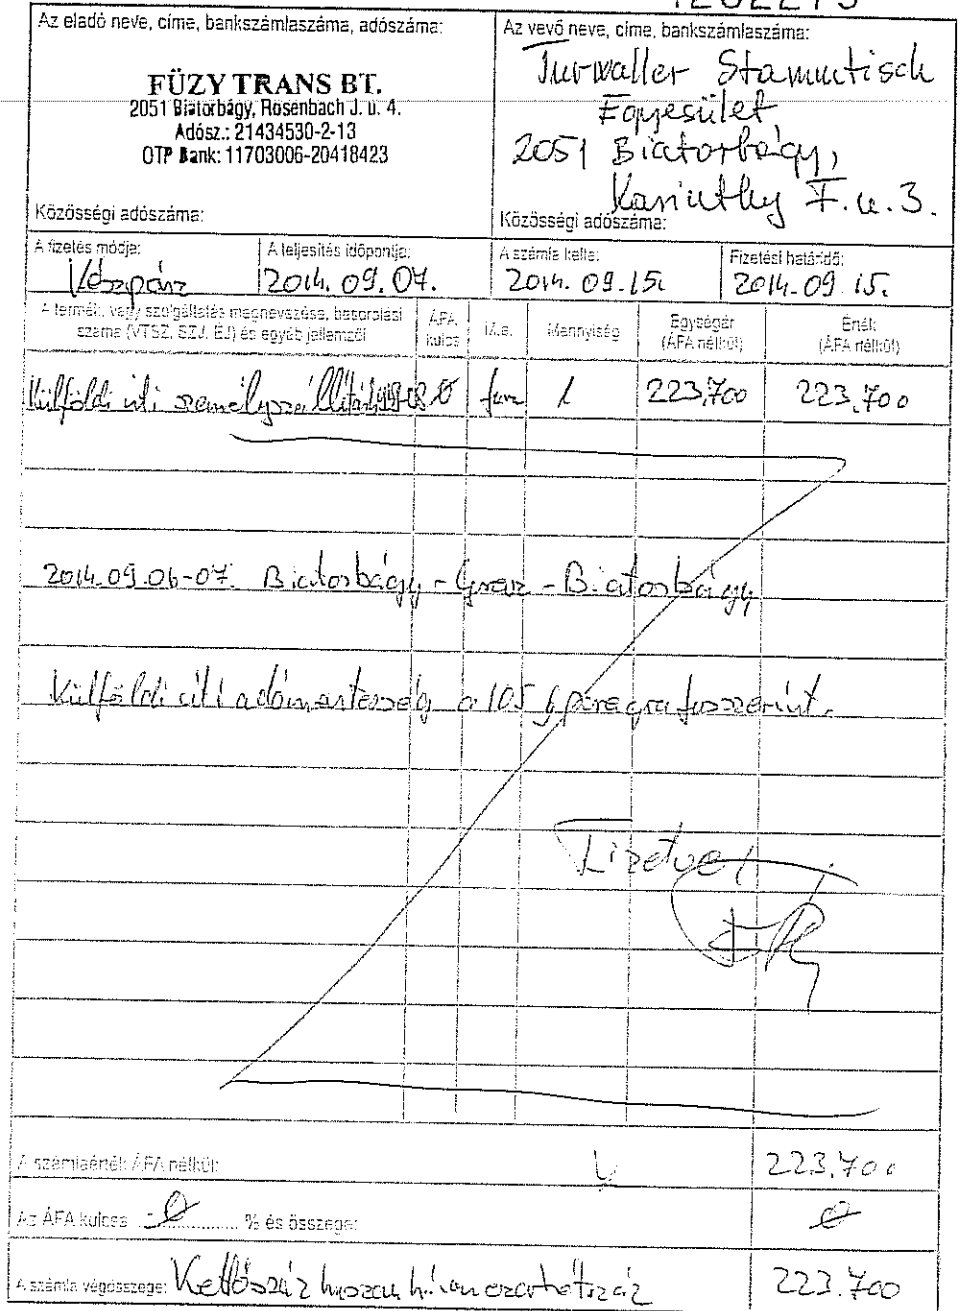 Az eladó neve, címe, bankszámlaszáma, adószáma:
FÜZY TRANS BT.
2051 Biatorbágy, Rosenbach J. u. 4.
Adósz.: 21434530-2-13
OTP Bank: 11703006-20418423
Közösségi adószáma:
Az vevő neve, címe, bankszámlaszáma:
Turwaller Stammtisch
Egyesület
2051 Biatorbágy,
Karinthy F. u. 3.
Közösségi adószáma:
A fizetés módja: A teljesítés időpontja: A számla kelte: Fizetési határidő:
Készpénz 2014. 09. 07. 2014. 09. 15. 2014. 09. 15.
A termék, vagy szolgáltatás megnevezése, besorolási száma (VTSZ, SZJ, ÉJ) és egyéb jellemzői ÁFA kulcs M.e. Mennyiség Egységár (ÁFA nélkül) Érték (ÁFA nélkül)
Külföldi úti személyszállítás 0 fuv 1 223,700 223.700
2014.09.06-07. Biatorbágy - Graz - Biatorbágy
Külföldi úti adómentesség a 105 § paragrafus szerint.
Fizetve!
A számlaérték ÁFA nélkül: 223.700
Az ÁFA kulcsa 0 % és összege: 0
A számla végösszege: Kettőszáz huszon három ezer hétszáz 223.700